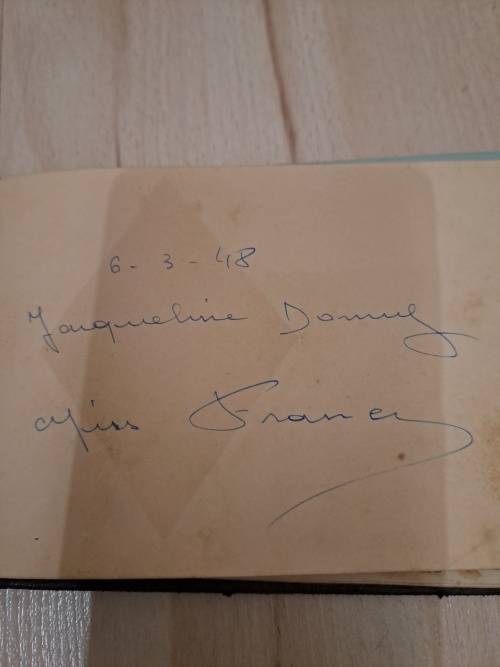 6-3-48
Jacqueline Donny
Miss France